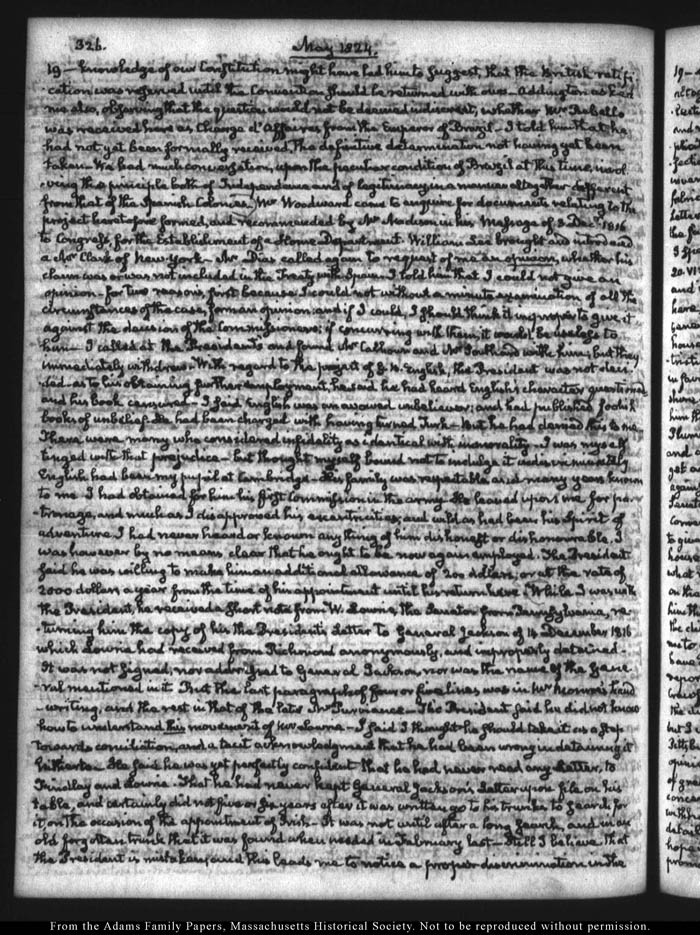 326.
May 1824.
19— knowledge of our Constitution might have led him to suggest, that the British ratifi-
-cation was referred until the Convention should be returned with ours— Addington asked
me also, observing that the question would not be deemed indiscreet, whether Mr Rebello
was received here as Chargé d'Affaires from the Emperor of Brazil— I told him that he
had not yet been formally received, the definitive determination not having yet been
taken— We had much conversation, upon the peculiar condition of Brazil at this time, invol-
-ving the principle both of Independence and of legitimacy in a manner altogether different
from that of the Spanish Colonies. Mr Woodward came to enquire for documents relating to the
project heretofore formed, and recommended by Mr Madison in his Message of 3 Decr 1816
to Congress, for the Establishment of a Home Department. William Lee brought and introduced
a Mr Clark of New-York— Mr Dias called again to request of me an opinion, whether his
claim was or was not included in the Treaty with Spain. I told him that I could not give an
opinion— for two reasons, first because I could not without a minute examination of all the
circumstances of the case, form an opinion; and if I could, I should think it improper to give it,
against the decision of the Commissioners; if concurring with them, it would be useless to
him— I called at the President's and found Mr Calhoun and Mr Southard with him; but they
immediately withdrew— With regard to the project of G. B. English, the President was not deci-
-ded as to his obtaining further employment, he said he had heard English's character questioned
and his book censured— I said English was an avowed unbeliever; and had published foolish
books of unbelief. He had been charged with having turned Turk— But he had denied this to me.
There were many who considered infidelity as identical with immorality— I was myself
tinged with that prejudice— but thought myself bound not to indulge it indiscriminately
English had been my pupil at Cambridge— His family was respectable and many years known
to me. I had obtained for him his first Commission in the army. He leaned upon me for pa-
-tronage, and much as I disapproved his eccentricities, and wild as had been his Spirit of
adventure I had never heard or known any thing of him dishonest or dishonourable. I
was however by no means clear that he ought to be now again employed. The President
said he was willing to make him an additional allowance of 200 dollars, or at the rate of
2000 dollars a year from the time of his appointment until his return here. While I was with
the President, he received a short note from W. Lowrie, the Senator from Pennsylvania, re-
-turning him the copy of his the President's Letter to General Jackson of 14 December 1816
which Lowrie had received from Richmond anonymously, and improperly detained—
It was not signed, nor addressed to General Jackson, nor was the name of the Gene-
-ral mentioned in it. But the last paragraph of four or five lines was in Mr Monroe's hand
-writing, and the rest in that of the late Mr Purviance— The President said he did not know
how to understand this movement of Mr Lowrie— I said I thought he should take it as a step
towards conciliation, and a tacit acknowledgment that he had been wrong in detaining it
hitherto— He said he was yet perfectly confident that he had never read any Letter, to
Findlay and Lowrie— That he had never kept General Jackson's Letter upon file on his
table, and certainly did not five or six years after it was written go to his trunks to search for
it on the occasion of the appointment of Irish— It was not until after a long search, and in an
old forgotten trunk that it was found when needed in February last— Still I believe that
the President is mistaken, and this leads me to notice a proper discrimination in the
From the Adams Family Papers, Massachusetts Historical Society. Not to be reproduced without permission.